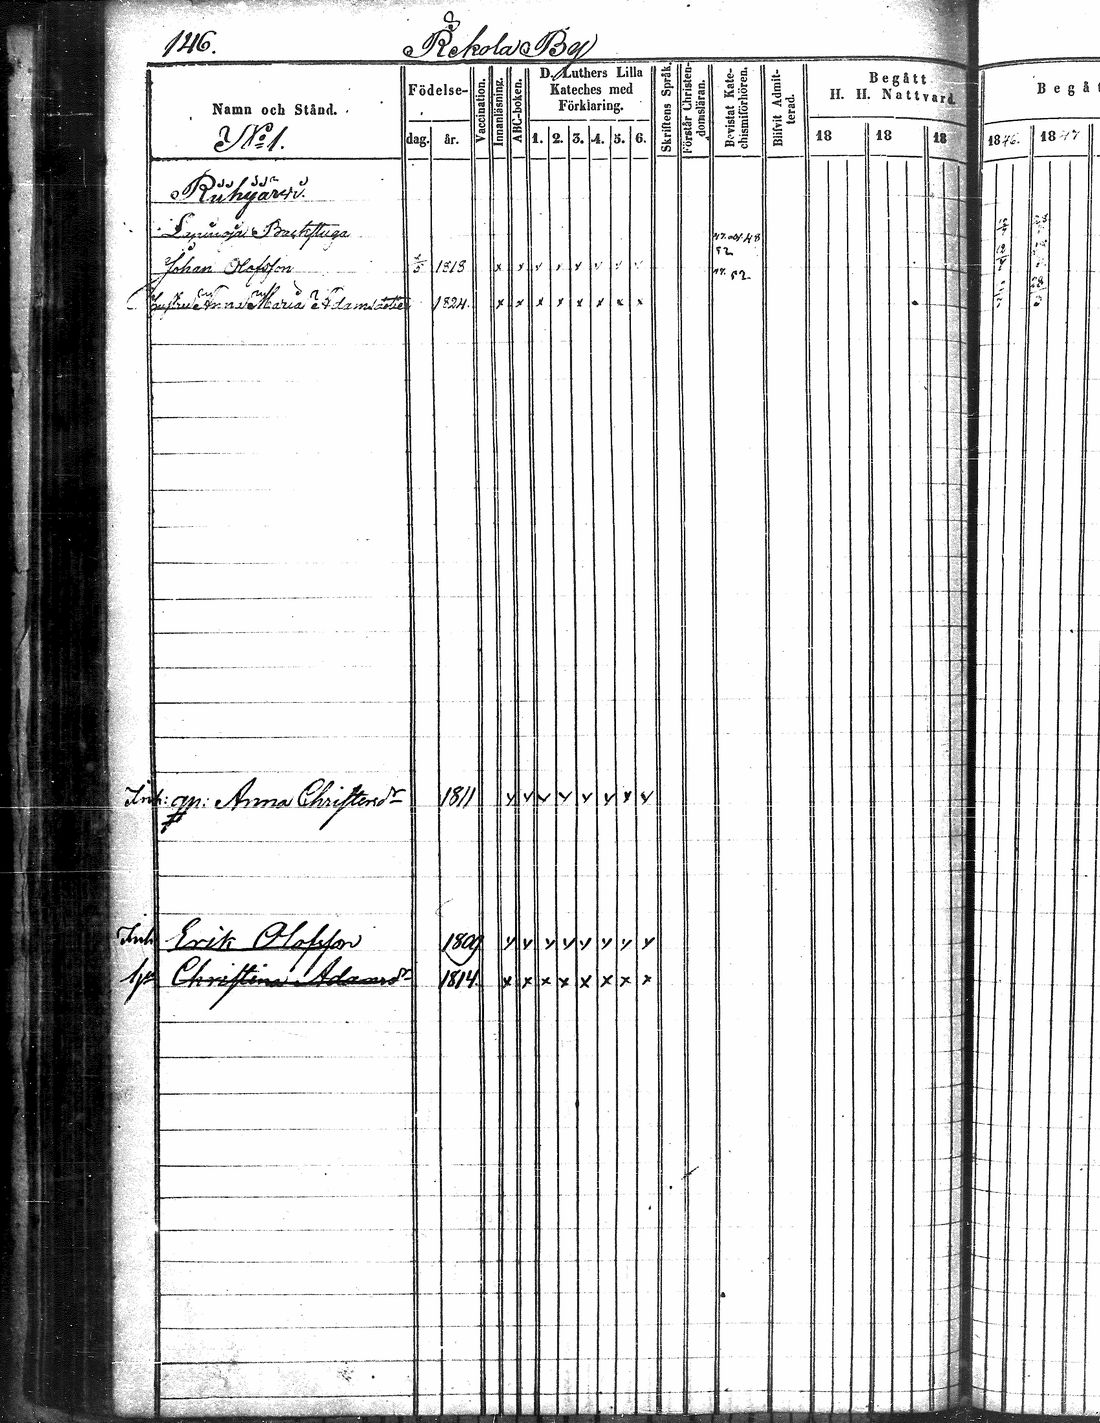 146.
Rekola By
Namn och Stånd.
Födelse-
dag.
år.
Vaccination.
Innanläsning.
ABC-boken.
D. Luthers Lilla
Kateches med
Förklaring.
1. 2. 3. 4. 5. 6.
Skriftens Språk.
Förstår Christen-
domsläran.
Bevistat Kate-
chismiförhören.
Blifvit Admit-
terad.
Begått
H. H. Nattvard.
18 18 18
Begåt
1846. 1847
No 1.
Backstuga
48
52
Johan Olofsson 1818 x x
52
Hustru Anna Maria Adamsdotter 1824. x x x x x x x x
Inh: Anna Christersdr 1811
Inh Erik Olofsson 1809
Christina Adamsdr 1814. x x x x x x x x